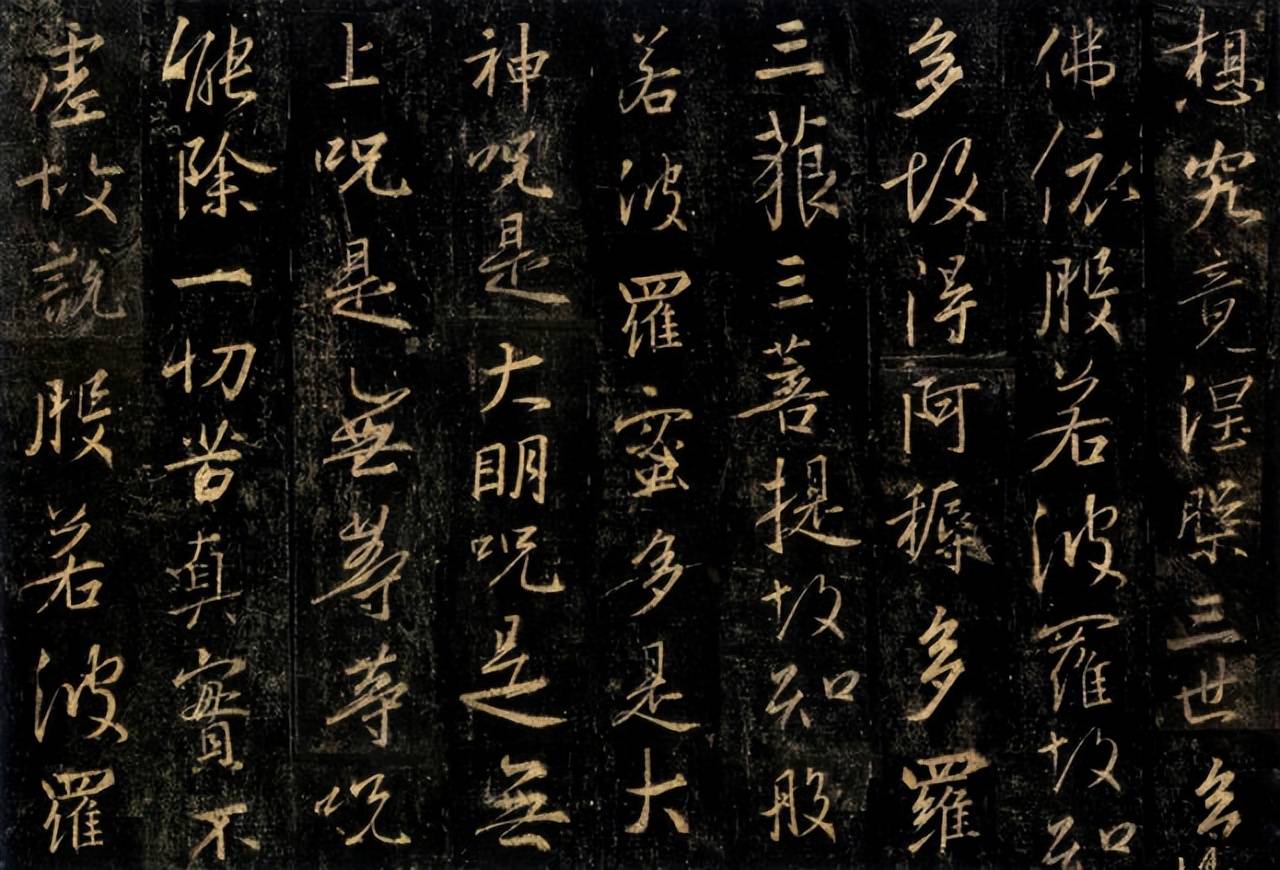 想究竟涅槃三世
佛依般若波羅故知
多故得阿耨多羅
三藐三菩提故知般
若波羅蜜多是大
神呪是大明呪是無
上呪是無等等呪
能除一切苦真實不
虛故說般若波羅